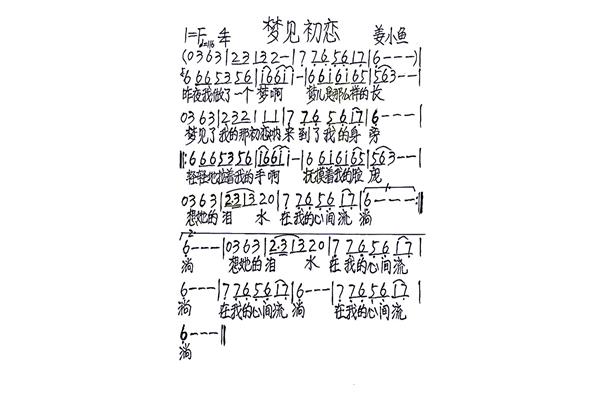 梦见初恋
1=F 4/4 姜小鱼
(0363|23132-|7765617|6---)|
6665356|i66ii-|66i6i65|563--|
昨夜我做了一个梦啊 梦儿是那么样的长
0363|232111|7765617|6---|
梦见了我的那初恋她来到了我的身旁
‖:6665356|i66ii-|66i6i65|563--|
轻轻地拉着我的手啊 抚摸着我的脸庞
0363|231320|7765617|6----:‖
想她的泪水在我的心间流淌
6---|0363|231320|7765617|
淌 想她的泪水在我的心间流
6---|7765617|6---|7765617|
淌 在我的心间流淌 在我的心间流
6---‖
淌